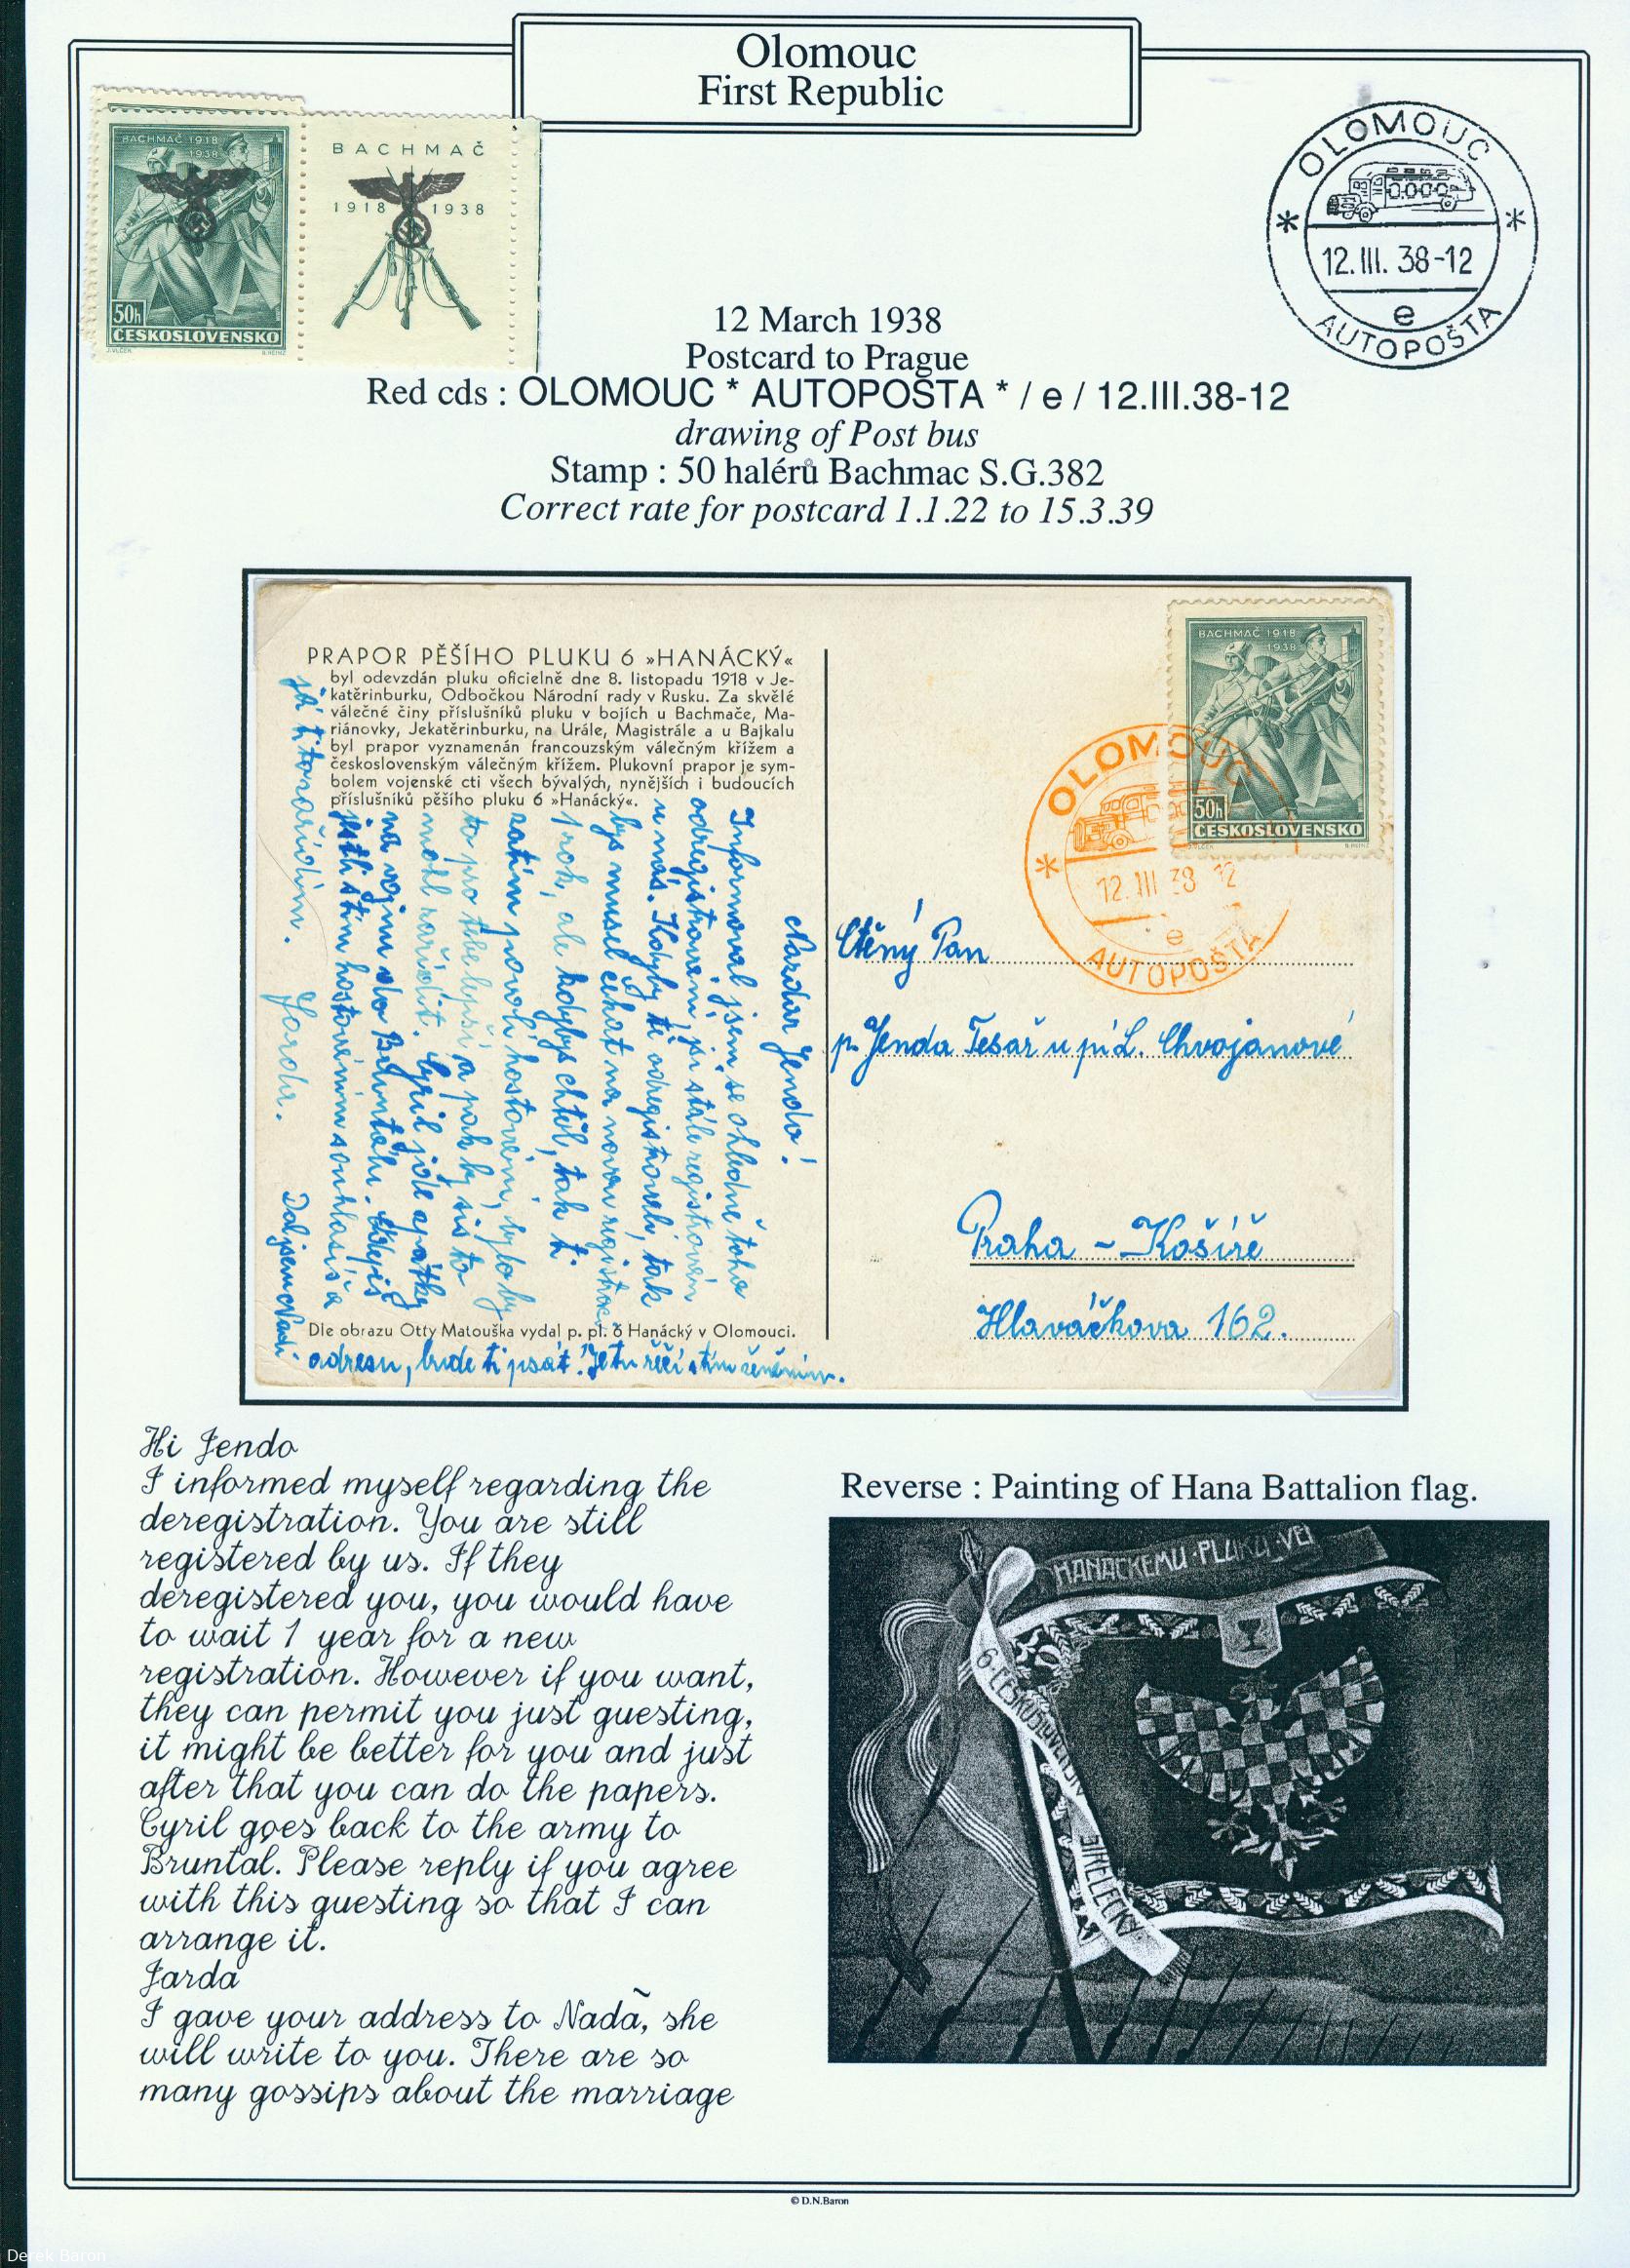 Olomouc
First Republic
BACHMAČ 1918
1938
50h
ČESKOSLOVENSKO
BACHMAČ
1918 1938
OLOMOUC
12.III. 38-12
e
* AUTOPOŠTA *
12 March 1938
Postcard to Prague
Red cds : OLOMOUC * AUTOPOSTA * / e / 12.III.38-12
drawing of Post bus
Stamp : 50 halérů Bachmac S.G.382
Correct rate for postcard 1.1.22 to 15.3.39
PRAPOR PĚŠÍHO PLUKU 6 »HANÁCKÝ«
byl odevzdán pluku oficielně dne 8. listopadu 1918 v Je-
katěrinburku, Odbočkou Národní rady v Rusku. Za skvělé
válečné činy příslušníků pluku v bojích u Bachmače, Ma-
riánovky, Jekatěrinburku, na Urále, Magistrále a u Bajkalu
byl prapor vyznamenán francouzským válečným křížem a
československým válečným křížem. Plukovní prapor je sym-
bolem vojenské cti všech bývalých, nynějších i budoucích
příslušníků pěšího pluku 6 »Hanácký«.
Nazdar Jendo!
Informoval jsem se ohledně toho
odregistrování, jsi stále registrován
u nás. Kdyby tě odregistrovali, tak
bys musel čekat na novou registraci
1 rok, ale kdybys chtěl, tak ti
zatím povolí hostování, bylo by
to pro tebe lepší a pak by sis to
mohl zařídit. Cyril jde zpátky
na vojnu do Bruntálu.
jestli s tím hostováním souhlasíš a
já ti to zařídím. Jarda.
Dal jsem Nadi
adresu, bude ti psát!
Dle obrazu Otty Matouška vydal p. pl. 6 Hanácký v Olomouci.
BACHMAČ 1918
1938
50h
ČESKOSLOVENSKO
OLOMOUC
12 III 38 12
e
* AUTOPOŠTA
Ctěný Pan
p. Jenda Tesař u pí L. Chvojanové
Praha - Košíře
Hlaváčkova 162.
Hi Jendo
I informed myself regarding the
deregistration. You are still
registered by us. If they
deregistered you, you would have
to wait 1 year for a new
registration. However if you want,
they can permit you just guesting,
it might be better for you and just
after that you can do the papers.
Cyril goes back to the army to
Bruntal. Please reply if you agree
with this guesting so that I can
arrange it.
Jarda
I gave your address to Nadã, she
will write to you. There are so
many gossips about the marriage
Reverse : Painting of Hana Battalion flag.
HANÁCKÉMU·PLUKU·VĚ
6·ČESKOSLOVENSKÝ
STŘELECKÝ
© D.N.Baron
Derek Baron